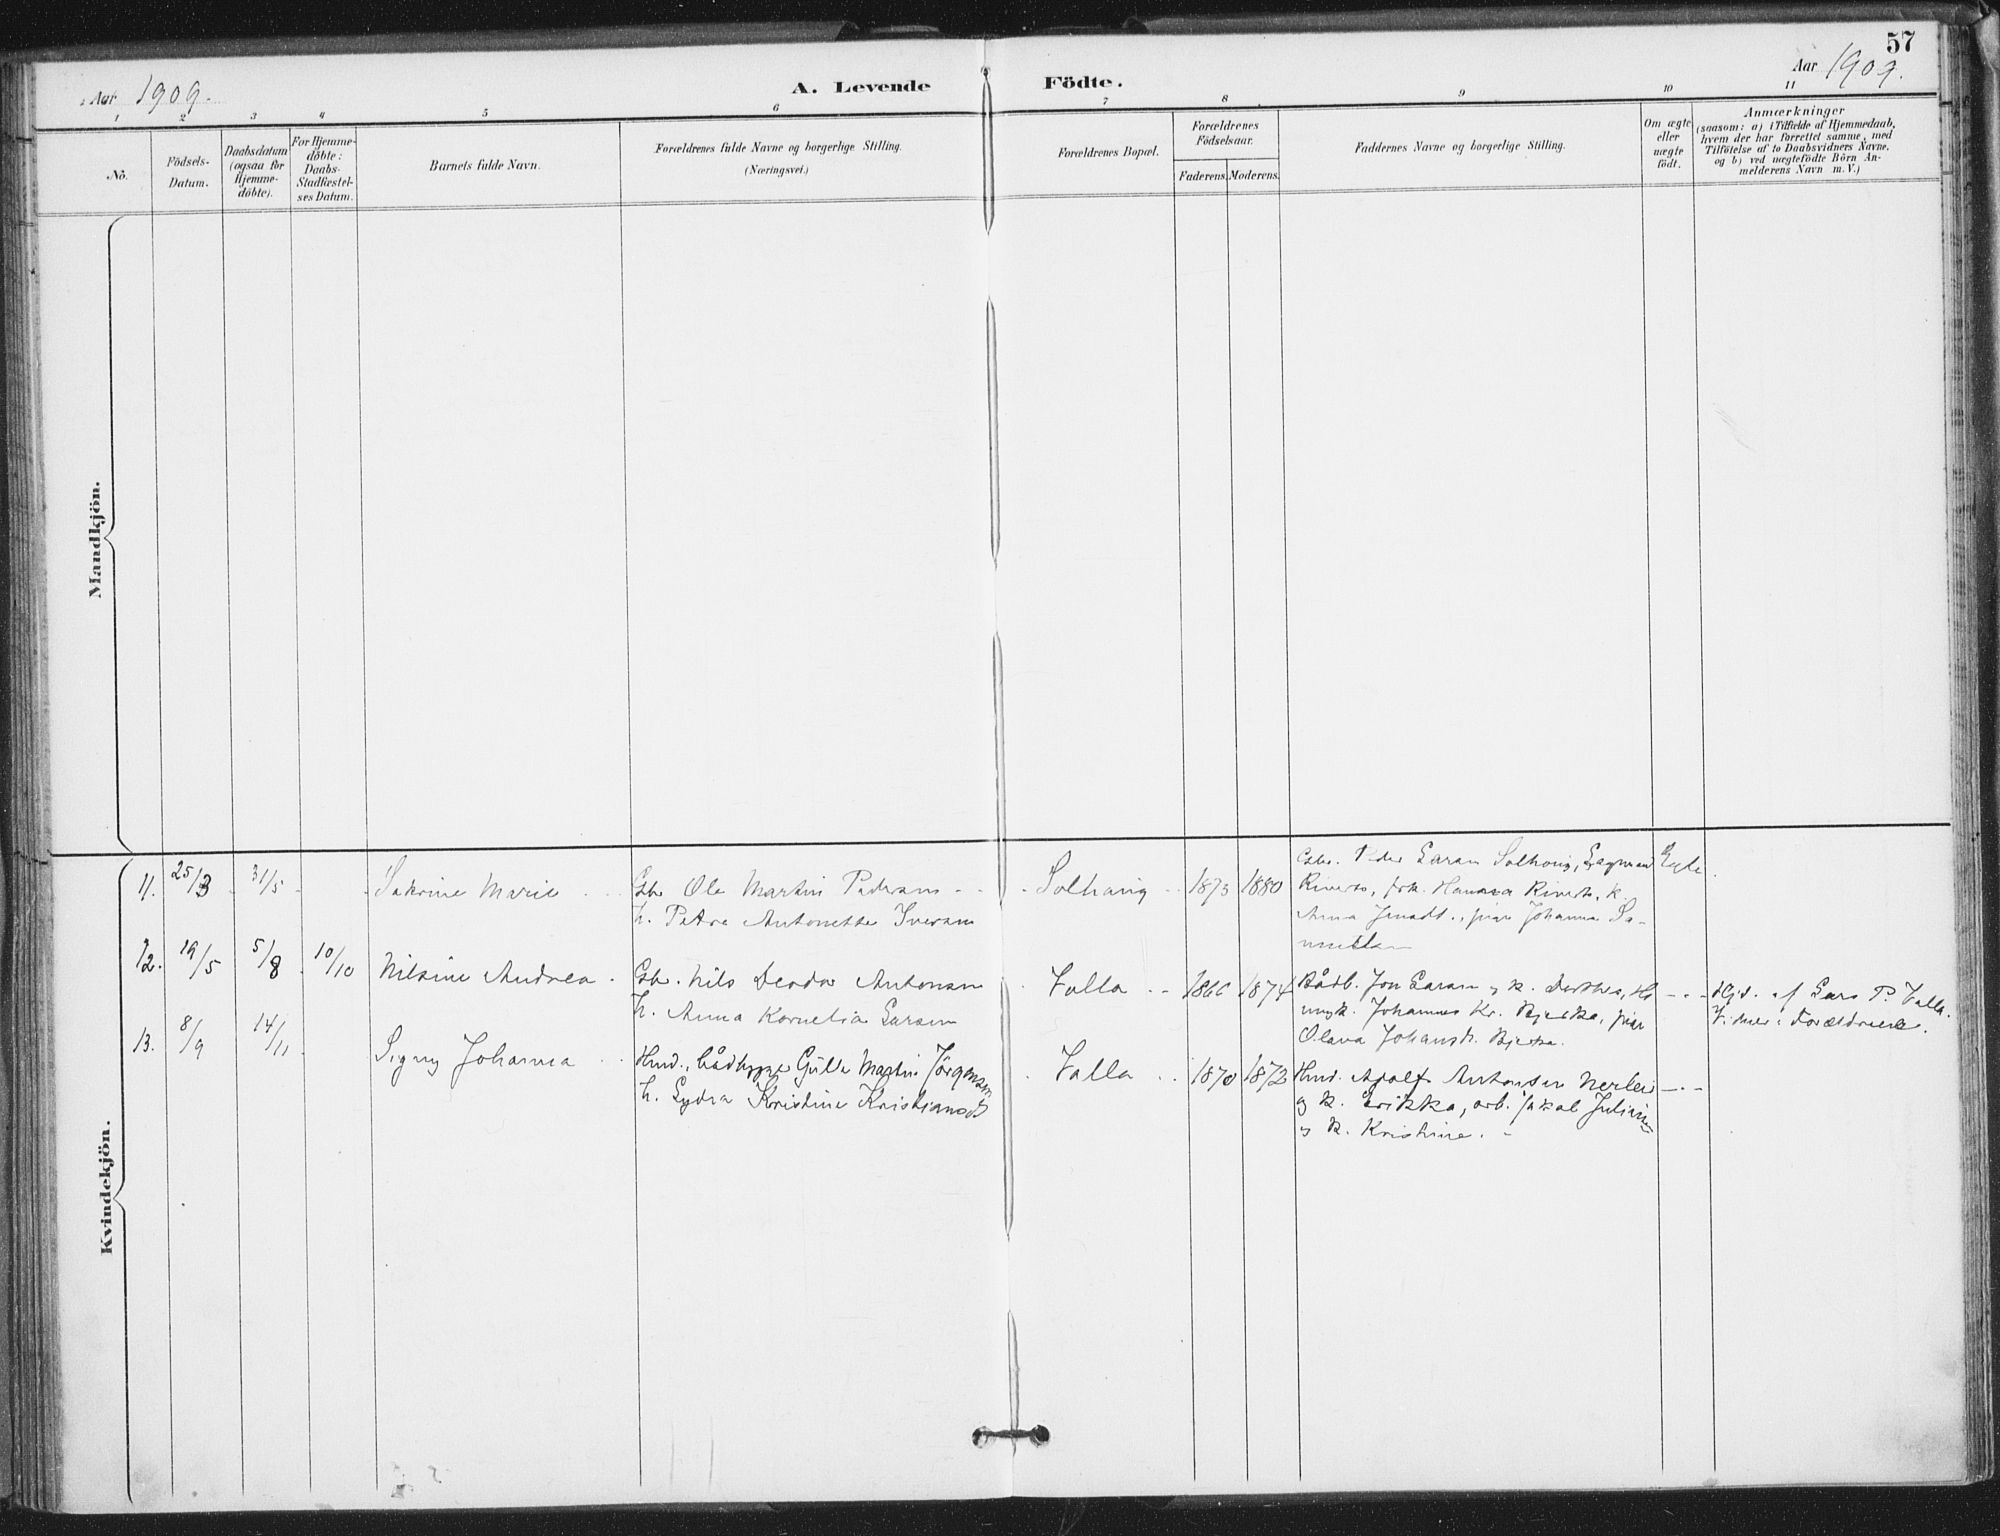 57
Aar 1909. A. Levende Födte. Aar 1909.
1 2 3 4 5 6 7 8 9 10 11
No.
Födsels-
Datum.
Daabsdatum
(ogsaa for
Hjemme-
døbte).
For Hjemme-
døbte:
Daabs-
Stadfæstel-
ses Datum.
Barnets fulde Navn.
Forældrenes fulde Navne og borgerlige Stilling.
(Næringsvei.)
Forældrenes Bopæl.
Forældrenes
Födselsaar.
Faderens. Moderens.
Faddernes Navne og borgerlige Stilling.
Om ægte
eller
uægte
födt.
Anmærkninger
(saasom: a) i Tilfælde af Hjemmedaab,
hvem der har forrettet samme, med
Tilföielse af to Daabsvidners Navne.
og b) ved uægtefödte Börn An-
melderens Navn m. V.)
Mandkjön.
Kvindekjön.
11. 25/3 31/5 Sakrine Marie
Gbr. Ole Martin Pedersen
h. Petra Antonette Iversen
Solhaug 1873 1880
Gbr. Peder Larsen Solhaug,
Anna Johanna Sa-
Ægte
12. 19/5 5/8 10/10 Nilsine Andrea.
Gbr. Nils Antonsen
h. Anna Kornelia Larsen
Valla 1866 1874
Bådb. Jon Larsen og k. Dorthea,
ungk. Johannes Kr. Bjerka, pige
Olava Johansd. Bjerka.
Hjd. af Lars P. Valla.
Vidner: Forældrene.
13. 8/9 14/11 Signy Johanna
Hmd., bådbygge Martin Jörgensen
h. Lydia Kristine Kristiansd
Valla 1870 1872
Hmd. Adolf Antonsen
og k. Erikka, arb. Jakob
og k. Kristine.